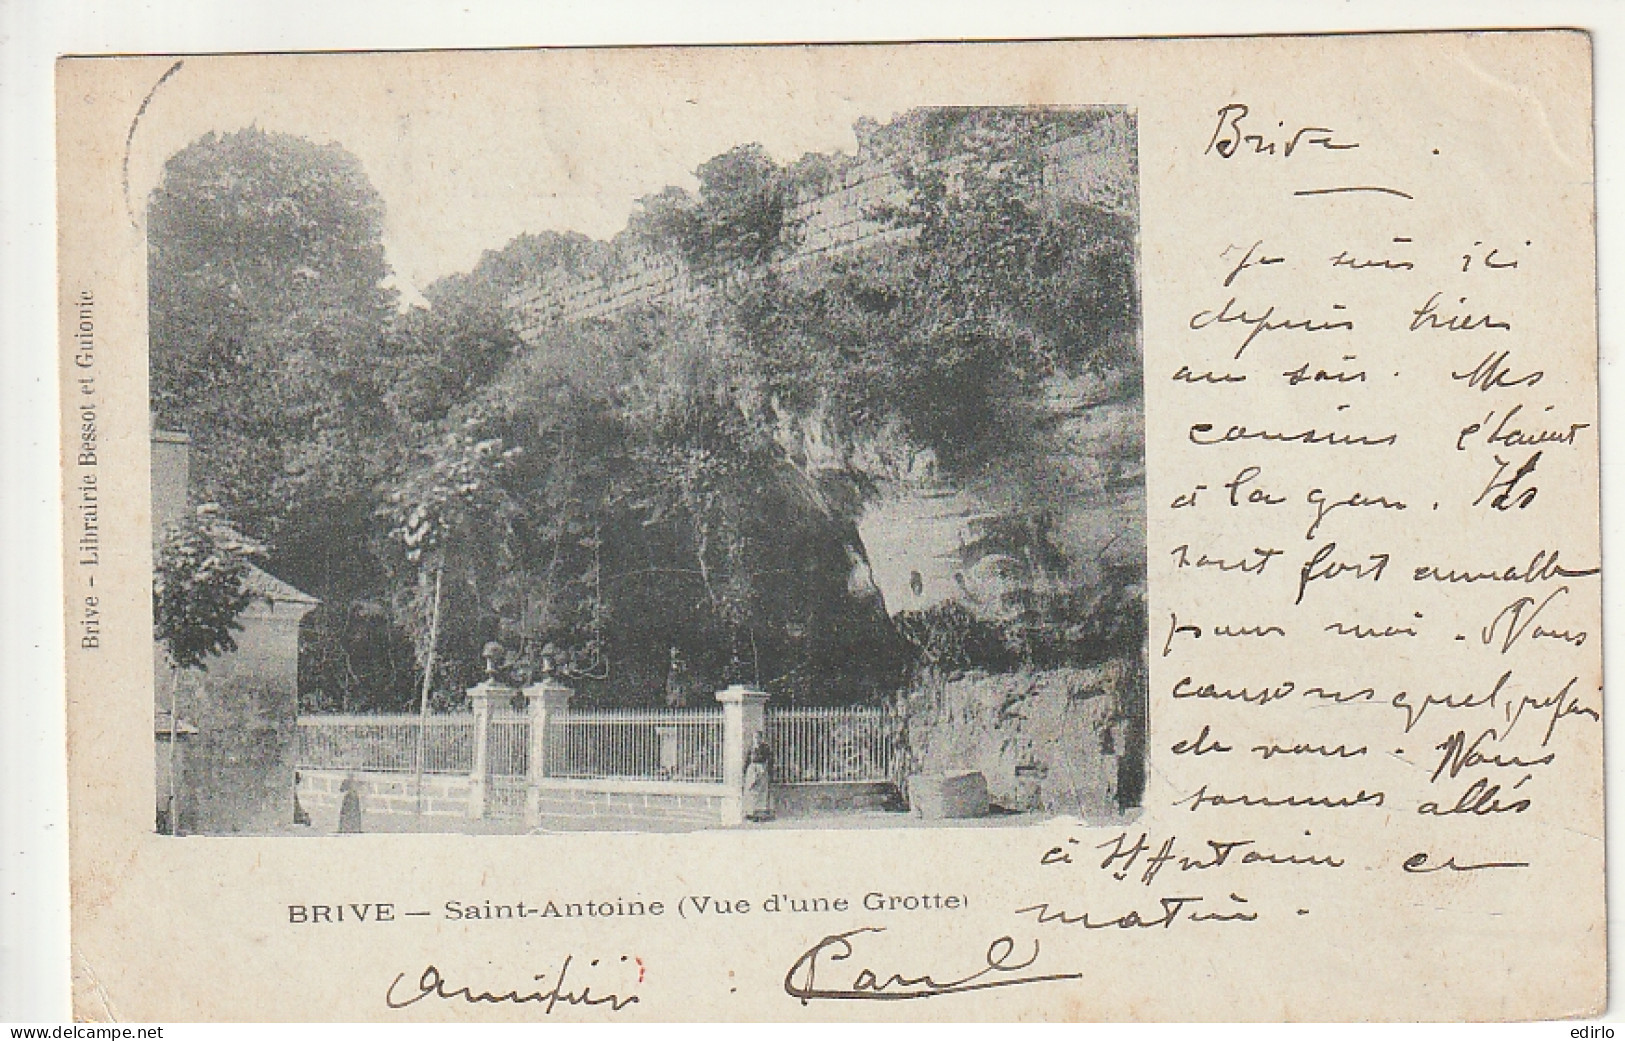 Brive – Librairie Bessot et Guionie
Brive.
Je suis ici
depuis hier
au soir. Mes
cousins étaient
à la gare. Ils
sont fort aimables
pour moi. Nous
causons quelquefois
de vous. Nous
sommes allés
à St Antoine ce
matin.
BRIVE — Saint-Antoine (Vue d'une Grotte)
Amitiés. Paul
edirlo
www.delcampe.net